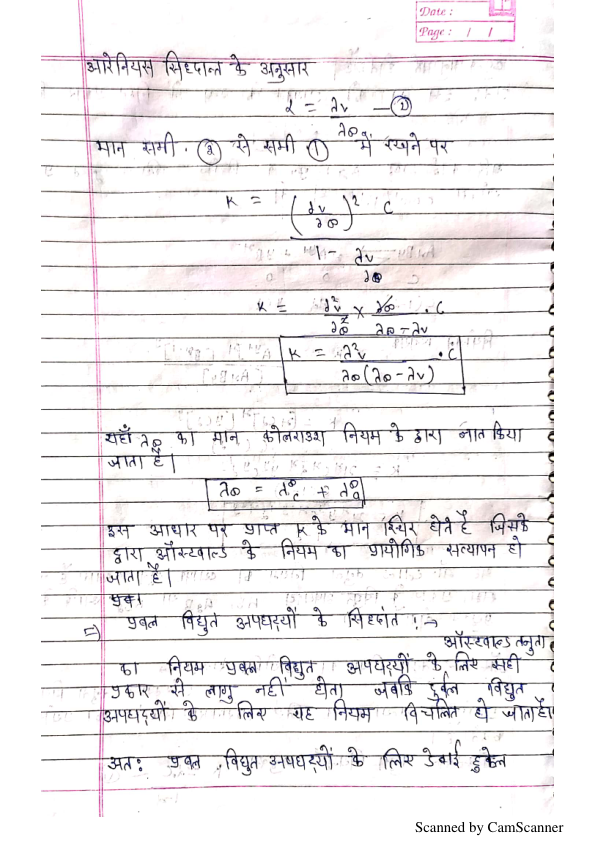 Date :
Page : / /
आरेनियस सिध्दान्त के अनुसार
α = λv —②
λ∞
मान समी. ② से समी ① में रखने पर
K = (λv/λ∞)² C
1 - λv/λ∞
K = λ²v/λ∞² × λ∞/λ∞-λv . C
K = λ²v . C
λ∞(λ∞-λv)
यहाँ λ∞ का मान कोलराउश नियम के द्वारा ज्ञात किया
जाता है।
λ∞ = λ°c + λ°a
इस आधार पर प्राप्त K के मान स्थिर होते है जिसके
द्वारा ऑस्टवाल्ड के नियम का प्रायोगिक सत्यापन हो
जाता है।
⇒ प्रबल विद्युत अपघट्यों के सिध्दांत :→
ऑस्टवाल्ड तनुता
का नियम प्रबल विद्युत अपघट्यों के लिए सही
प्रकार से लागु नहीं होता जबकि दुर्बल विद्युत
अपघट्यों के लिए यह नियम विचलित हो जाता है।
अतः प्रबल विद्युत अपघट्यों के लिए डेबाई हुकेल
Scanned by CamScanner